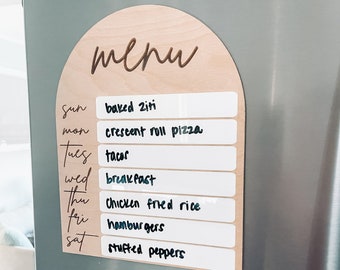 menu
sun baked ziti
mon crescent roll pizza
tues tacos
wed breakfast
thu chicken fried rice
fri hamburgers
sat stuffed peppers